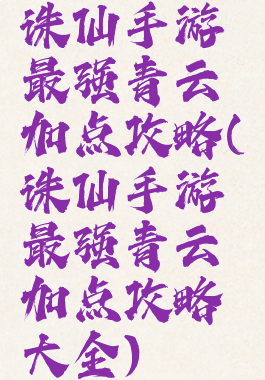 诛仙手游
最强青云
加点攻略(
诛仙手游
最强青云
加点攻略
大全)